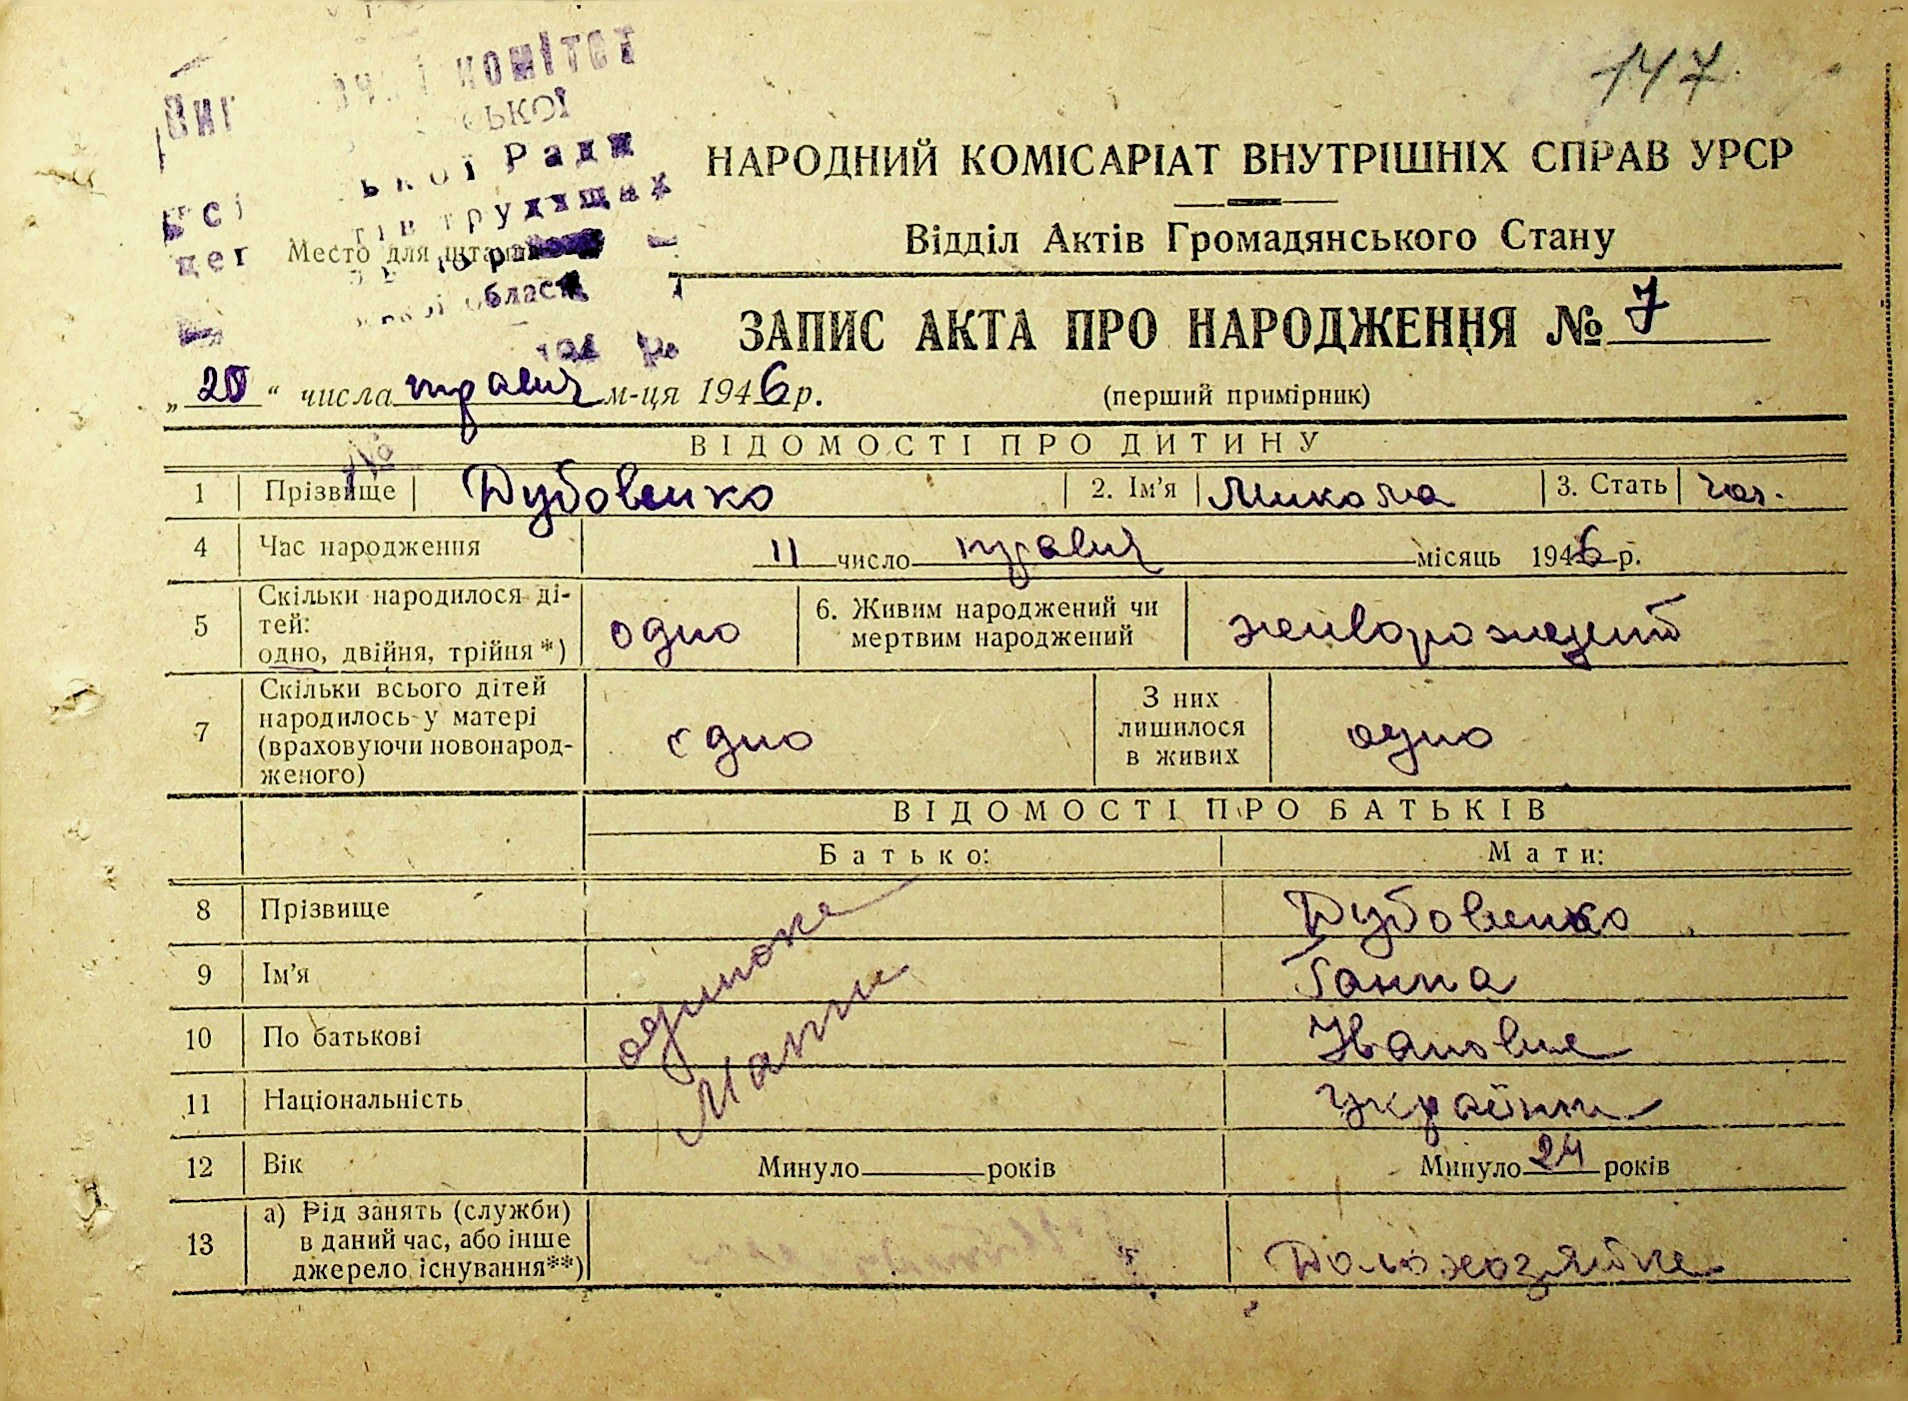 147
комітет
ської
ької Ради
трудящих
Место для штампа
області
НАРОДНИЙ КОМІСАРІАТ ВНУТРІШНІХ СПРАВ УРСР
Відділ Актів Громадянського Стану
ЗАПИС АКТА ПРО НАРОДЖЕННЯ № 7
„20“ числа травня м-ця 1946 р. (перший примірник)
ВІДОМОСТІ ПРО ДИТИНУ
1 Прізвище Дубовенко 2. Ім'я Микола 3. Стать чол.
4 Час народження 11 число травня місяць 1946 р.
5 Скільки народилося ді-
тей:
одно, двійня, трійня*) одно 6. Живим народжений чи
мертвим народжений живорожденный
7 Скільки всього дітей
народилось у матері
(враховуючи новонарод-
женого) одно З них
лишилося
в живих одно
ВІДОМОСТІ ПРО БАТЬКІВ
Батько: Мати:
8 Прізвище Дубовенко
9 Ім'я Ганна
10 По батькові Ивановна
11 Національність украинка
одинока
Мати
12 Вік Минуло ____ років Минуло 24 років
13 а) Рід занять (служби)
в даний час, або інше
джерело існування**) Домохозяйка